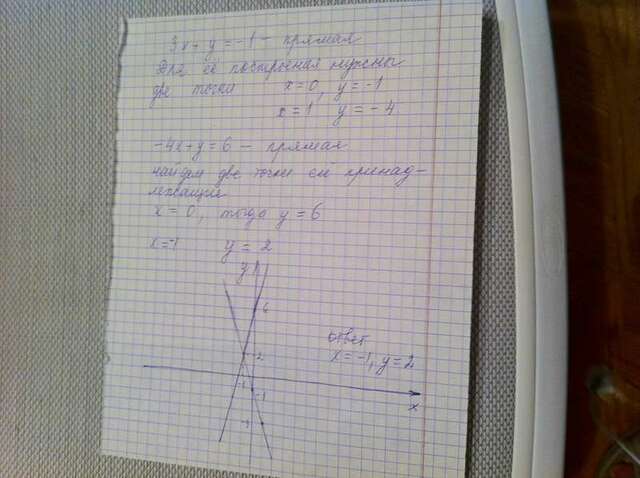 3x+y=-1 - прямая
Для её построения нужны
две точки x=0, y=-1
x=1 y=-4
-4x+y=6 - прямая
найдем две точки ей принад-
лежащие
x=0, тогда y=6
x=-1 y=2
y
6
ответ
2
x=-1, y=2
-1
-1
x